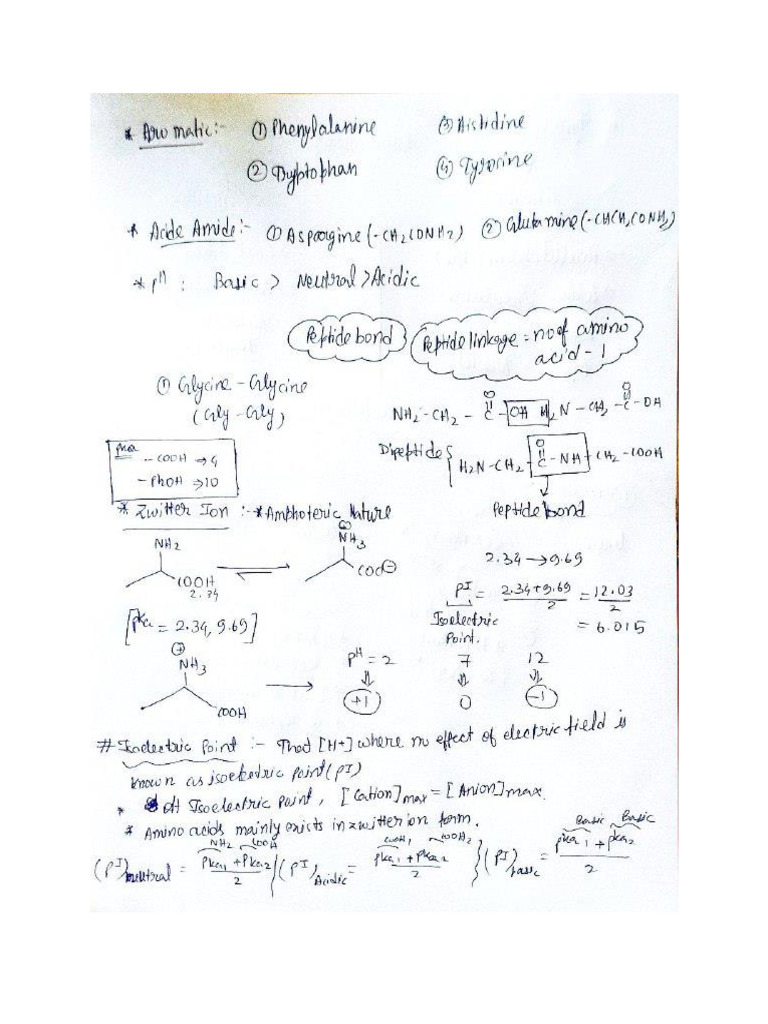 * Aromatic:- ① Phenylalanine ③ Histidine
② Tryptophan ④ Tyrosine
* Acide Amide:- ① Aspargine (-CH2CONH2) ② Glutamine (-CHCH2CONH2)
* pH : Basic > Neutral > Acidic
Peptide bond
Peptide linkage = no of amino
acid - 1
① Glycine - Glycine
(Gly - Gly)
NH2-CH2-C-OH H2N-CH2-C-OH
O O
pka
-COOH → 4
-PhOH → 10
Dipeptide { H2N-CH2-C-NH-CH2-COOH
O
Peptide bond
* Zwitter Ion :- * Amphoteric Nature
NH2
COOH
2.34
⊕
NH3
COO⊖
2.34 → 9.69
PI = 2.34+9.69/2 = 12.03/2
= 6.015
Isoelectric
Point.
[Pka = 2.34, 9.69]
⊕
NH3
COOH
PH = 2 7 12
+1 0 -1
# Isoelectric Point :- That [H+] where no effect of electric field is
known as isoelectric point (PI)
* At Isoelectric point, [Cation]max = [Anion]max.
* Amino acids mainly exists in zwitter ion form.
NH2 COOH
(PI)neutral = Pka1 + Pka2/2
COOH1 COOH2
(PI)Acidic = Pka1 + Pka2/2
Basic Basic
(PI)basic = Pka1 + Pka2/2